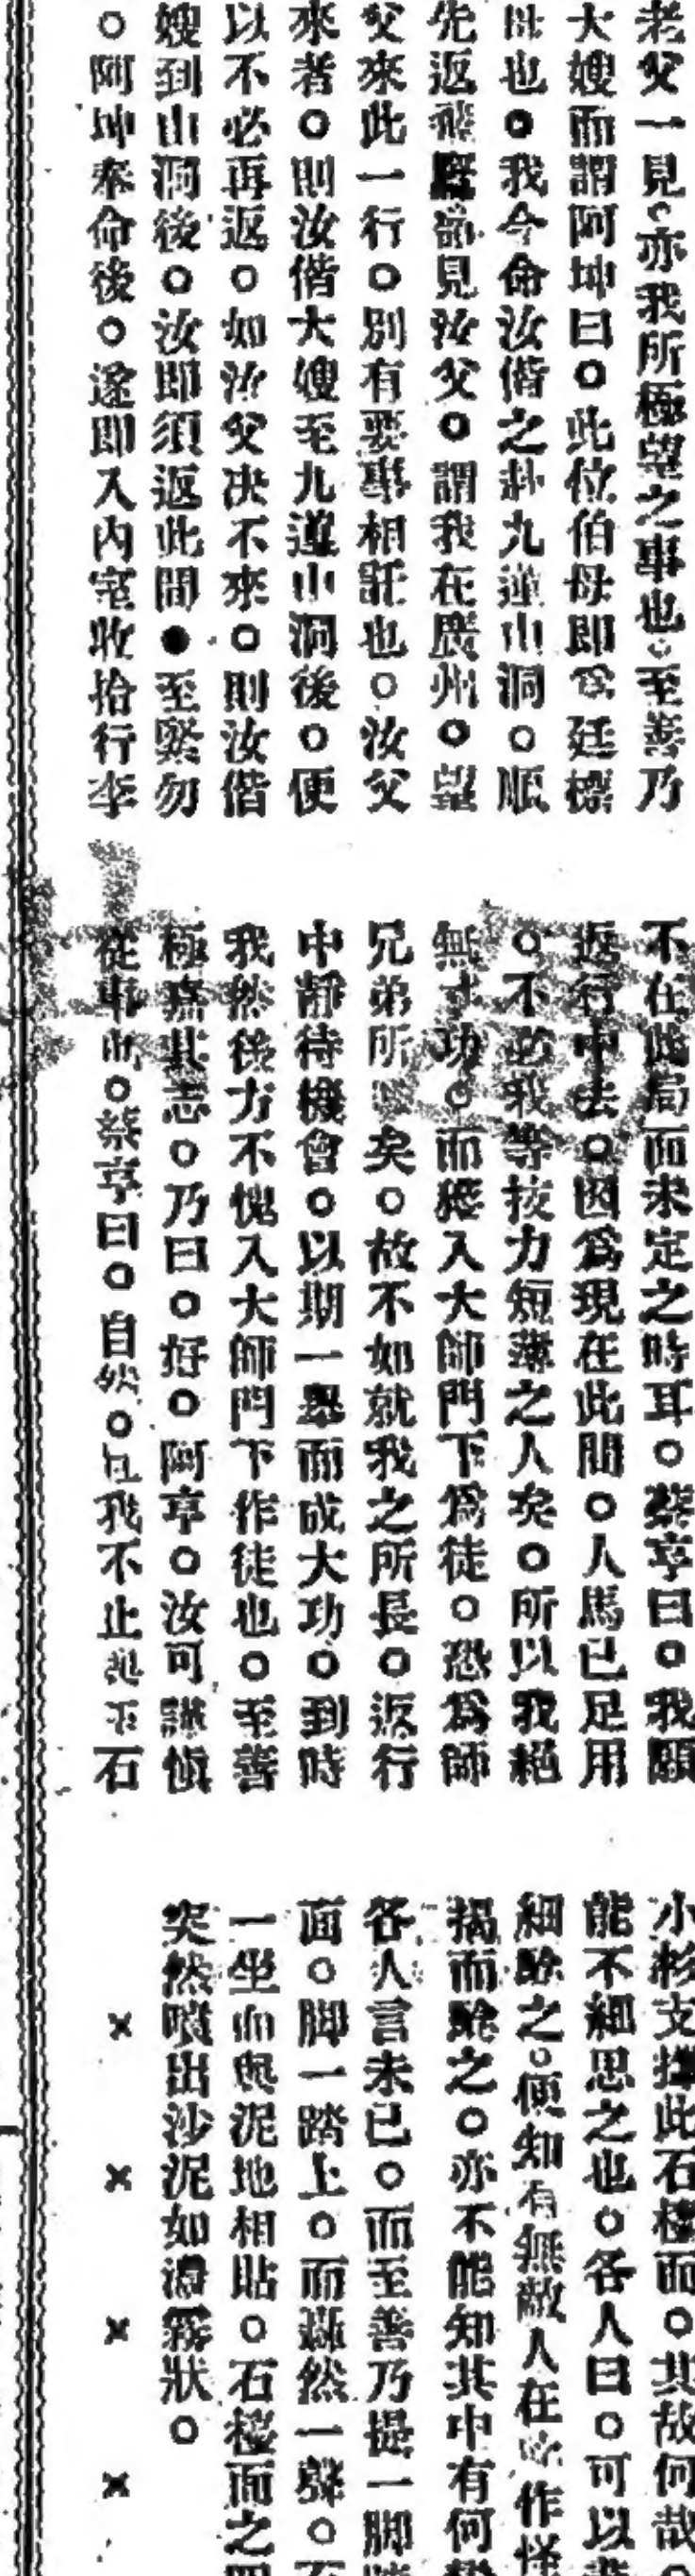 老父一見。亦我所極望之事也。至善乃
大嫂而謂阿坤曰。此位伯母即令廷標
母也。我今命汝偕之赴九蓮山洞。順
先返 見汝父。謂我在廣州。望
父來此一行。別有要事相託也。汝父
來者。則汝偕大嫂至九蓮山洞後。便
以不必再返。如汝父决不來。則汝偕
嫂到山洞後。汝即須返此間●至緊勿
。阿坤奉命後。遂即入內室收拾行李
不在此局面未定之時耳。蔡亨曰。我願
返行中去。因爲現在此間。人馬已足用
。不必我等技力短薄之人矣。所以我絕
無寸功。而遽入大師門下爲徒。恐爲師
兄弟所 矣。故不如就我之所長。返行
中靜待機會。以期一舉而成大功。到時
我然後方不愧入大師門下作徒也。至善
極嘉其志。乃曰。好。阿亨。汝可謹愼
從事 。蔡亨曰。自然。且我不止 石
小杉支撐此石檯面。其故何哉。
能不細思之也。各人曰。可以
細驗之。便知有無敵人在 作怪
揭而驗之。亦不能知其中有何
各人言未已。而至善乃提一脚
面。脚一踏上。而轟然一聲。
一坐而與泥地相貼。石檯面之四
突然噴出沙泥如濃霧狀。
× × × ×